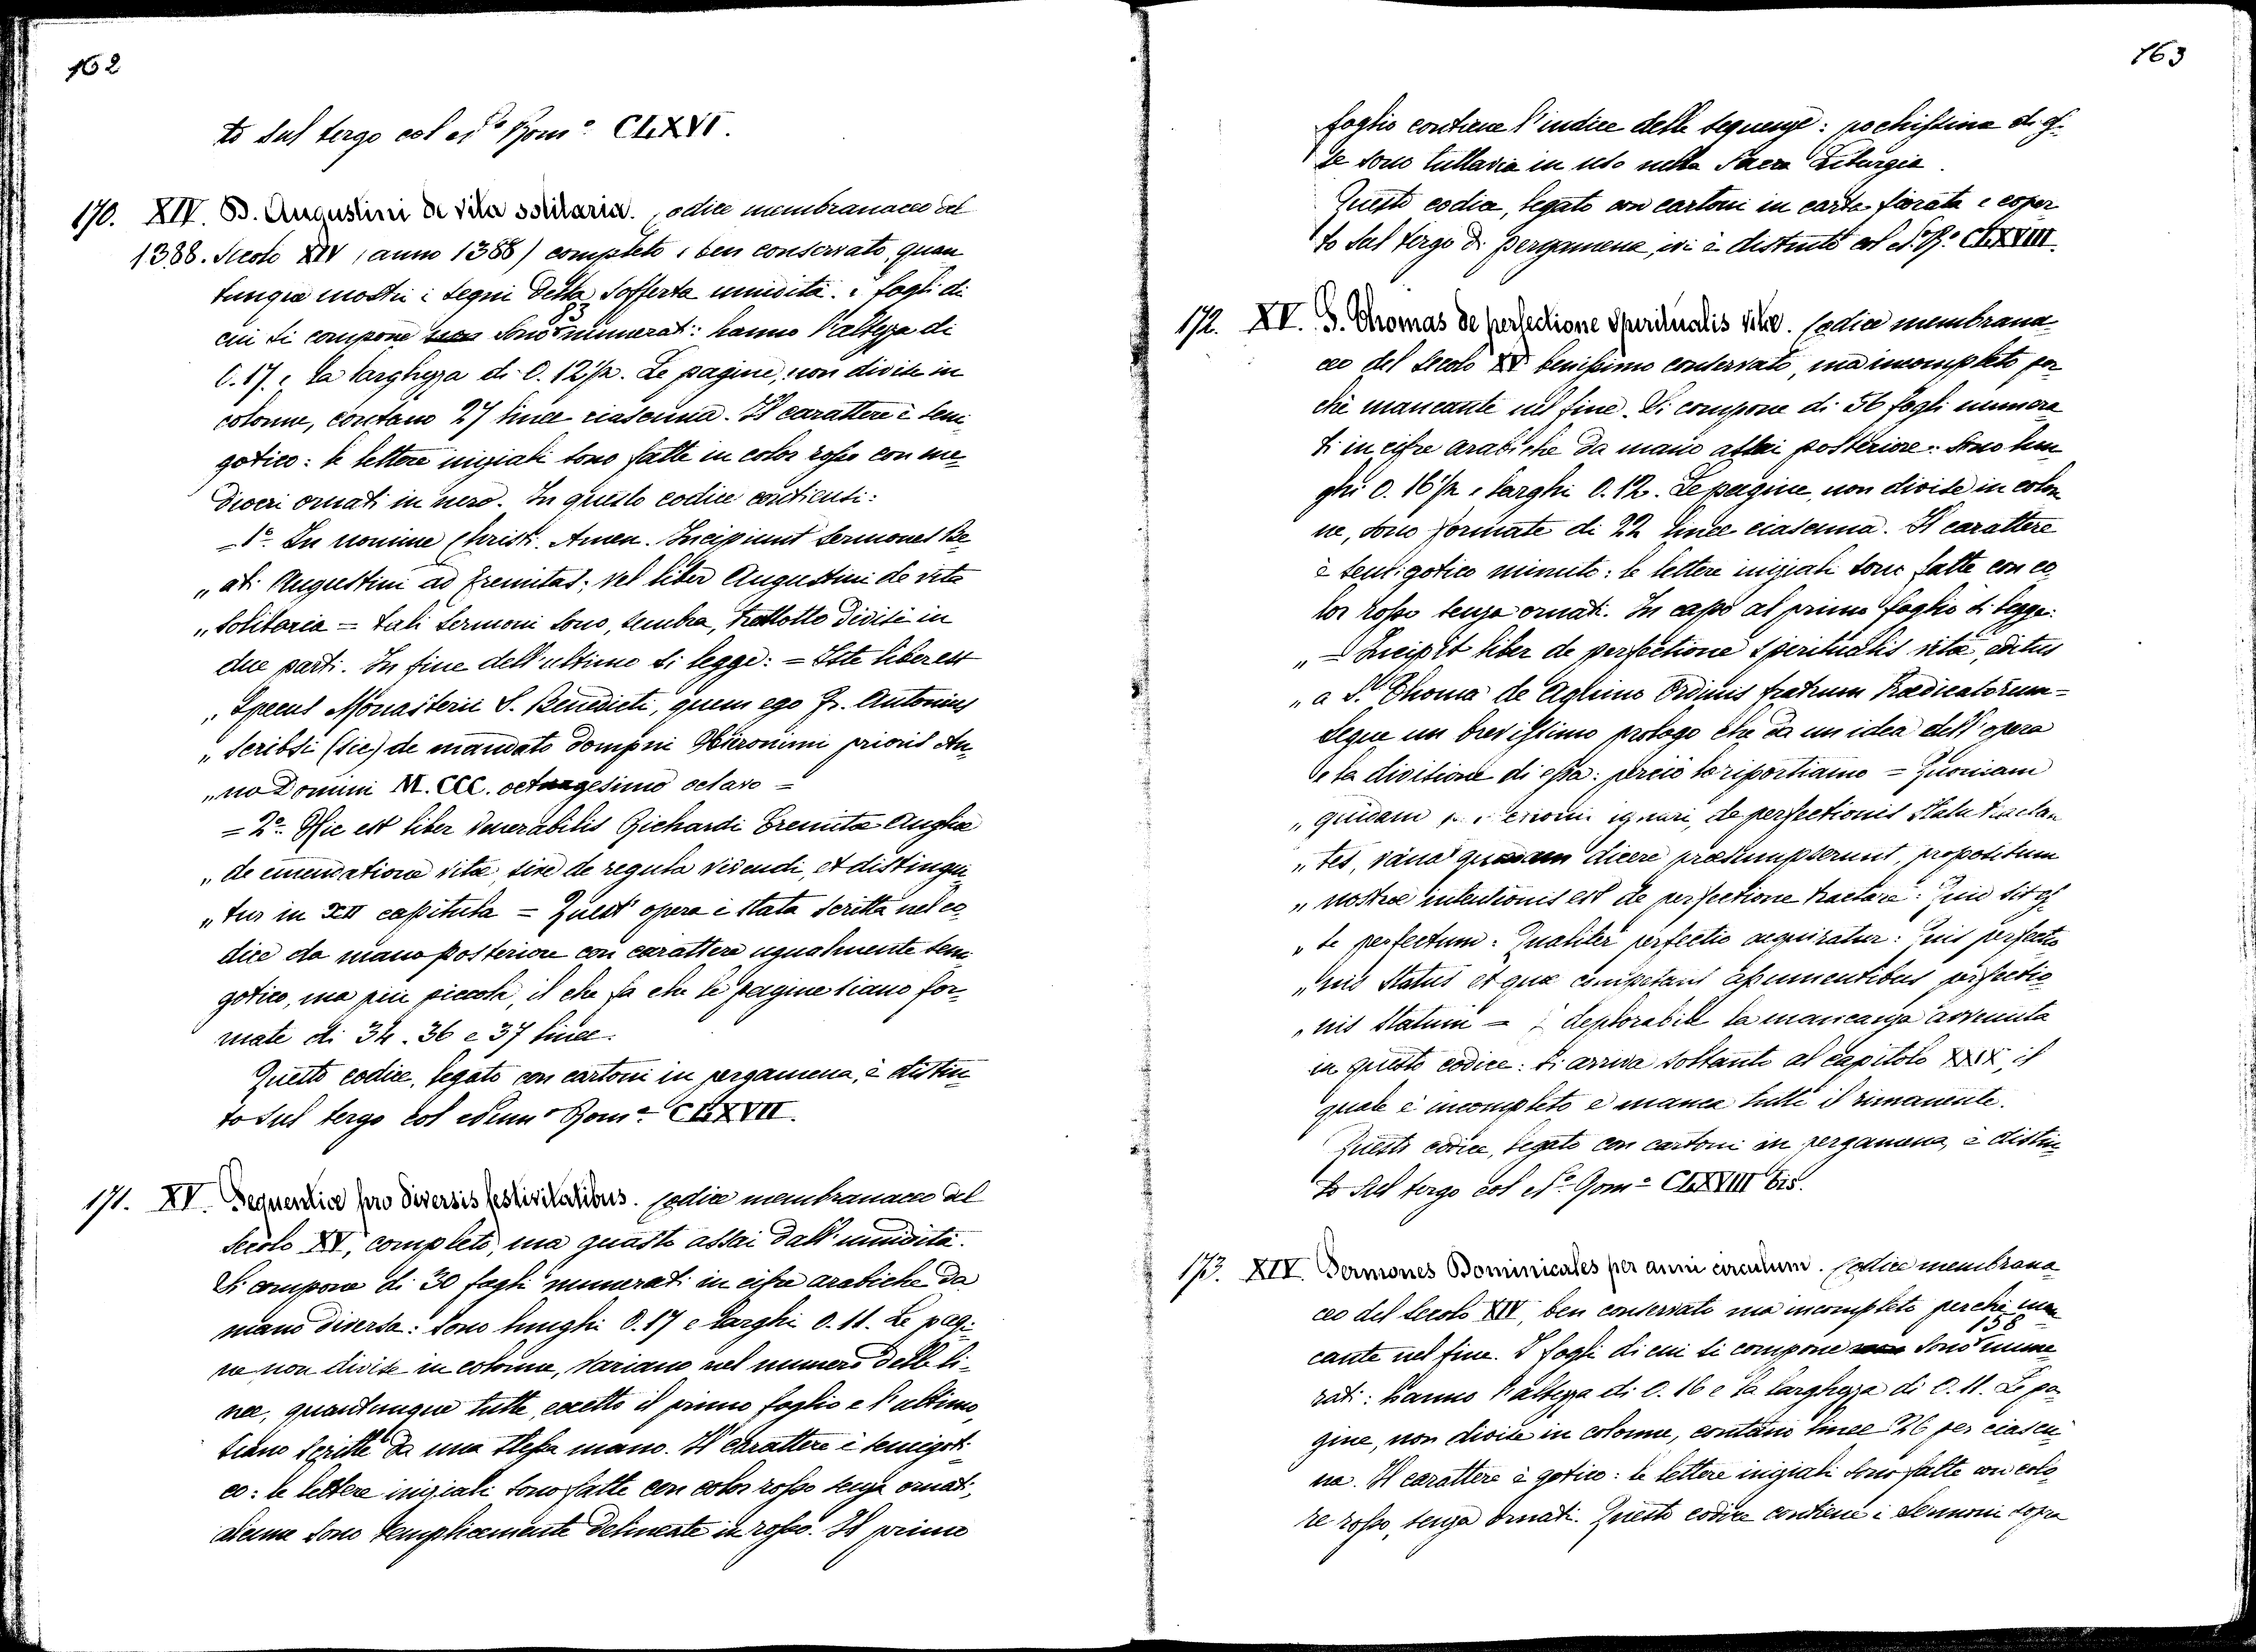 162
to sul tergo col N.º Rom.º CLXVI.
170. XIV. B. Augustini de vita solitaria. Codice membranaceo del
1388. Secolo XIV (anno 1388) completo e ben conservato, quan
tunque mostri i segni della sofferta umidità. I fogli di
cui si compone non sono 83 numerati: hanno l'altezza di
C. 17 e la larghezza di C. 12 1/2. Le pagine, non divise in
colonne, contano 27 linee ciascuna. Il carattere è semi
gotico: le lettere iniziali sono fatte in color rosso con me
diocri ornati in nero. In questo codice contiensi:
= 1º In nomine Christi. Amen. Incipiunt sermones Be
„ ati Augustini ad Eremitas; vel liber Augustini de vita
„ solitaria = tali sermoni sono, sembra, trentotto divisi in
due parti. In fine dell'ultimo si legge: = Iste liber est
„ Specus Monasterii S. Benedicti, quem ego Fr. Antonius
„ scribsi (sic) de mandato dompni Hieronimi prioris An
„ no Domini M. CCC. octuagesimo octavo =
= 2º Hic est liber venerabilis Richardi Eremitæ Angliæ
„ de emendatione vitæ, sive de regula vivendi, et distingui
„ tur in XII capitula = Quest'opera è stata scritta nel co
dice da mano posteriore con carattere ugualmente semi
gotico, ma più piccolo, il che fa che le pagine siano for
mate di 34. 36 e 37 linee.
Questo codice, legato con cartoni in pergamena, è distin
to sul tergo col Num.º Rom.º CLXVII.
171. XV. Sequentiæ pro diversis festivitatibus. Codice membranaceo del
Secolo XV, completo, ma guasto assai dall'umidità.
Si compone di 30 fogli numerati in cifre arabiche da
mano diversa: sono lunghi C. 17 e larghi C. 11. Le pagi
ne non divise in colonne, variano nel numero delle li
nee, quantunque tutte, eccetto il primo foglio e l'ultimo,
siano scritte da una stessa mano. Il carattere è semigoti
co: le lettere iniziali sono fatte con color rosso senza ornati,
alcune sono semplicemente delineate in rosso. Il primo
163
foglio contiene l'indice delle sequenze: pochissime di q.
te sono tuttavia in uso nella Sacra Liturgia.
Questo codice, legato con cartoni in carta fiorata e coper
to sul tergo di pergamena, ivi è distinto col N. R.º CLXVIII.
172. XV. S. Thomas de perfectione spiritualis vitæ. Codice membrana
ceo del Secolo XV benissimo conservato, ma incompleto per
chè mancante nel fine. Si compone di 56 fogli numera
ti in cifre arabiche da mano assai posteriore. Sono lun
ghi C. 16 1/2 e larghi C. 12. Le pagine, non divise in colon
ne, sono formate di 22 linee ciascuna. Il carattere
è semigotico minuto: le lettere iniziali sono fatte con co
lor rosso senza ornati. In capo al primo foglio si legge:
„ = Incipit liber de perfectione spiritualis vitæ, editus
„ a S. Thoma de Aquino Ordinis fratrum Prædicatorum =
Segue un brevissimo prologo che dà un idea dell'opera
e la divisione di essa: perciò lo riportiamo = Quoniam
„ quidam ignari, de perfectionis statu tractan
„ tes, vana quædam dicere præsumpserunt, propositum
„ nostræ intentionis est de perfectione tractare: Quid sit es
„ se perfectum: Qualiter perfectio acquiratur: Quis perfectio
„ nis status et quæ competant assumentibus perfectio
„ nis statum = È deplorabile la mancanza avvenuta
in questo codice: si arriva soltanto al capitolo XXIX, il
quale è incompleto e manca tutto il rimanente.
Questo codice, legato con cartoni in pergamena, è distin
to sul tergo col N.º Rom.º CLXVIII bis.
173. XIV. Sermones Dominicales per anni circulum. Codice membrana
ceo del Secolo XIV, ben conservato ma incompleto perchè man
cante nel fine. I fogli di cui si compone non sono 158 nume
rati: hanno l'altezza di C. 16 e la larghezza di C. 11. Le pa
gine, non divise in colonne, contano linee 26 per ciascu
na. Il carattere è gotico: le lettere iniziali sono fatte con colo
re rosso, senza ornati. Questo codice contiene i Sermoni sopra